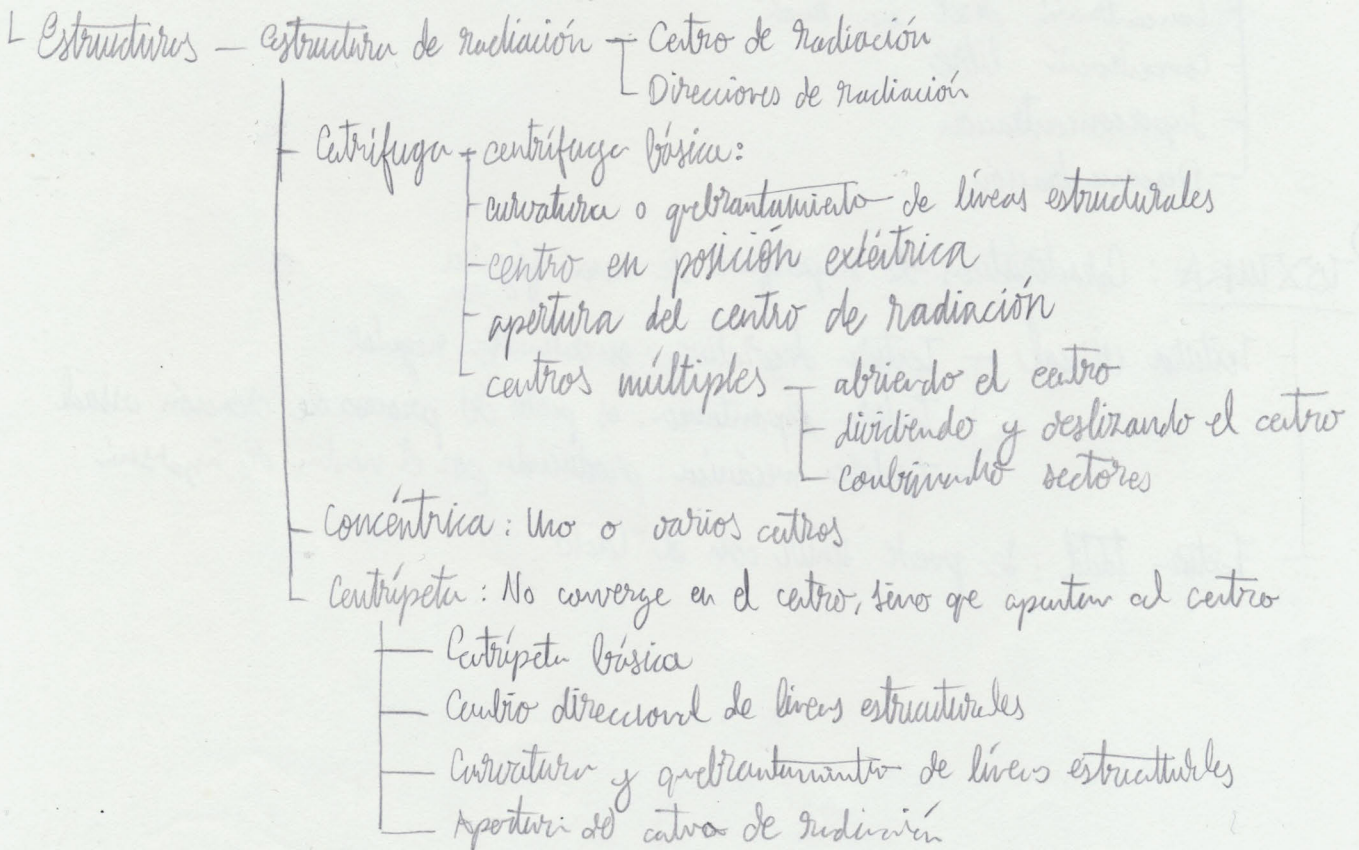 Estructuras — estructura de radiación — Centro de radiación
Direcciones de radiación
Centrífuga — centrífuga básica:
curvatura o quebrantamiento de líneas estructurales
centro en posición excéntrica
apertura del centro de radiación
centros múltiples — abriendo el centro
dividiendo y deslizando el centro
combinando sectores
Concéntrica: Uno o varios centros
Centrípeta: No converge en el centro, sino que apuntan al centro
Centrípeta básica
Cambio direccional de líneas estructurales
Curvatura y quebrantamiento de líneas estructurales
Apertura del centro de radiación